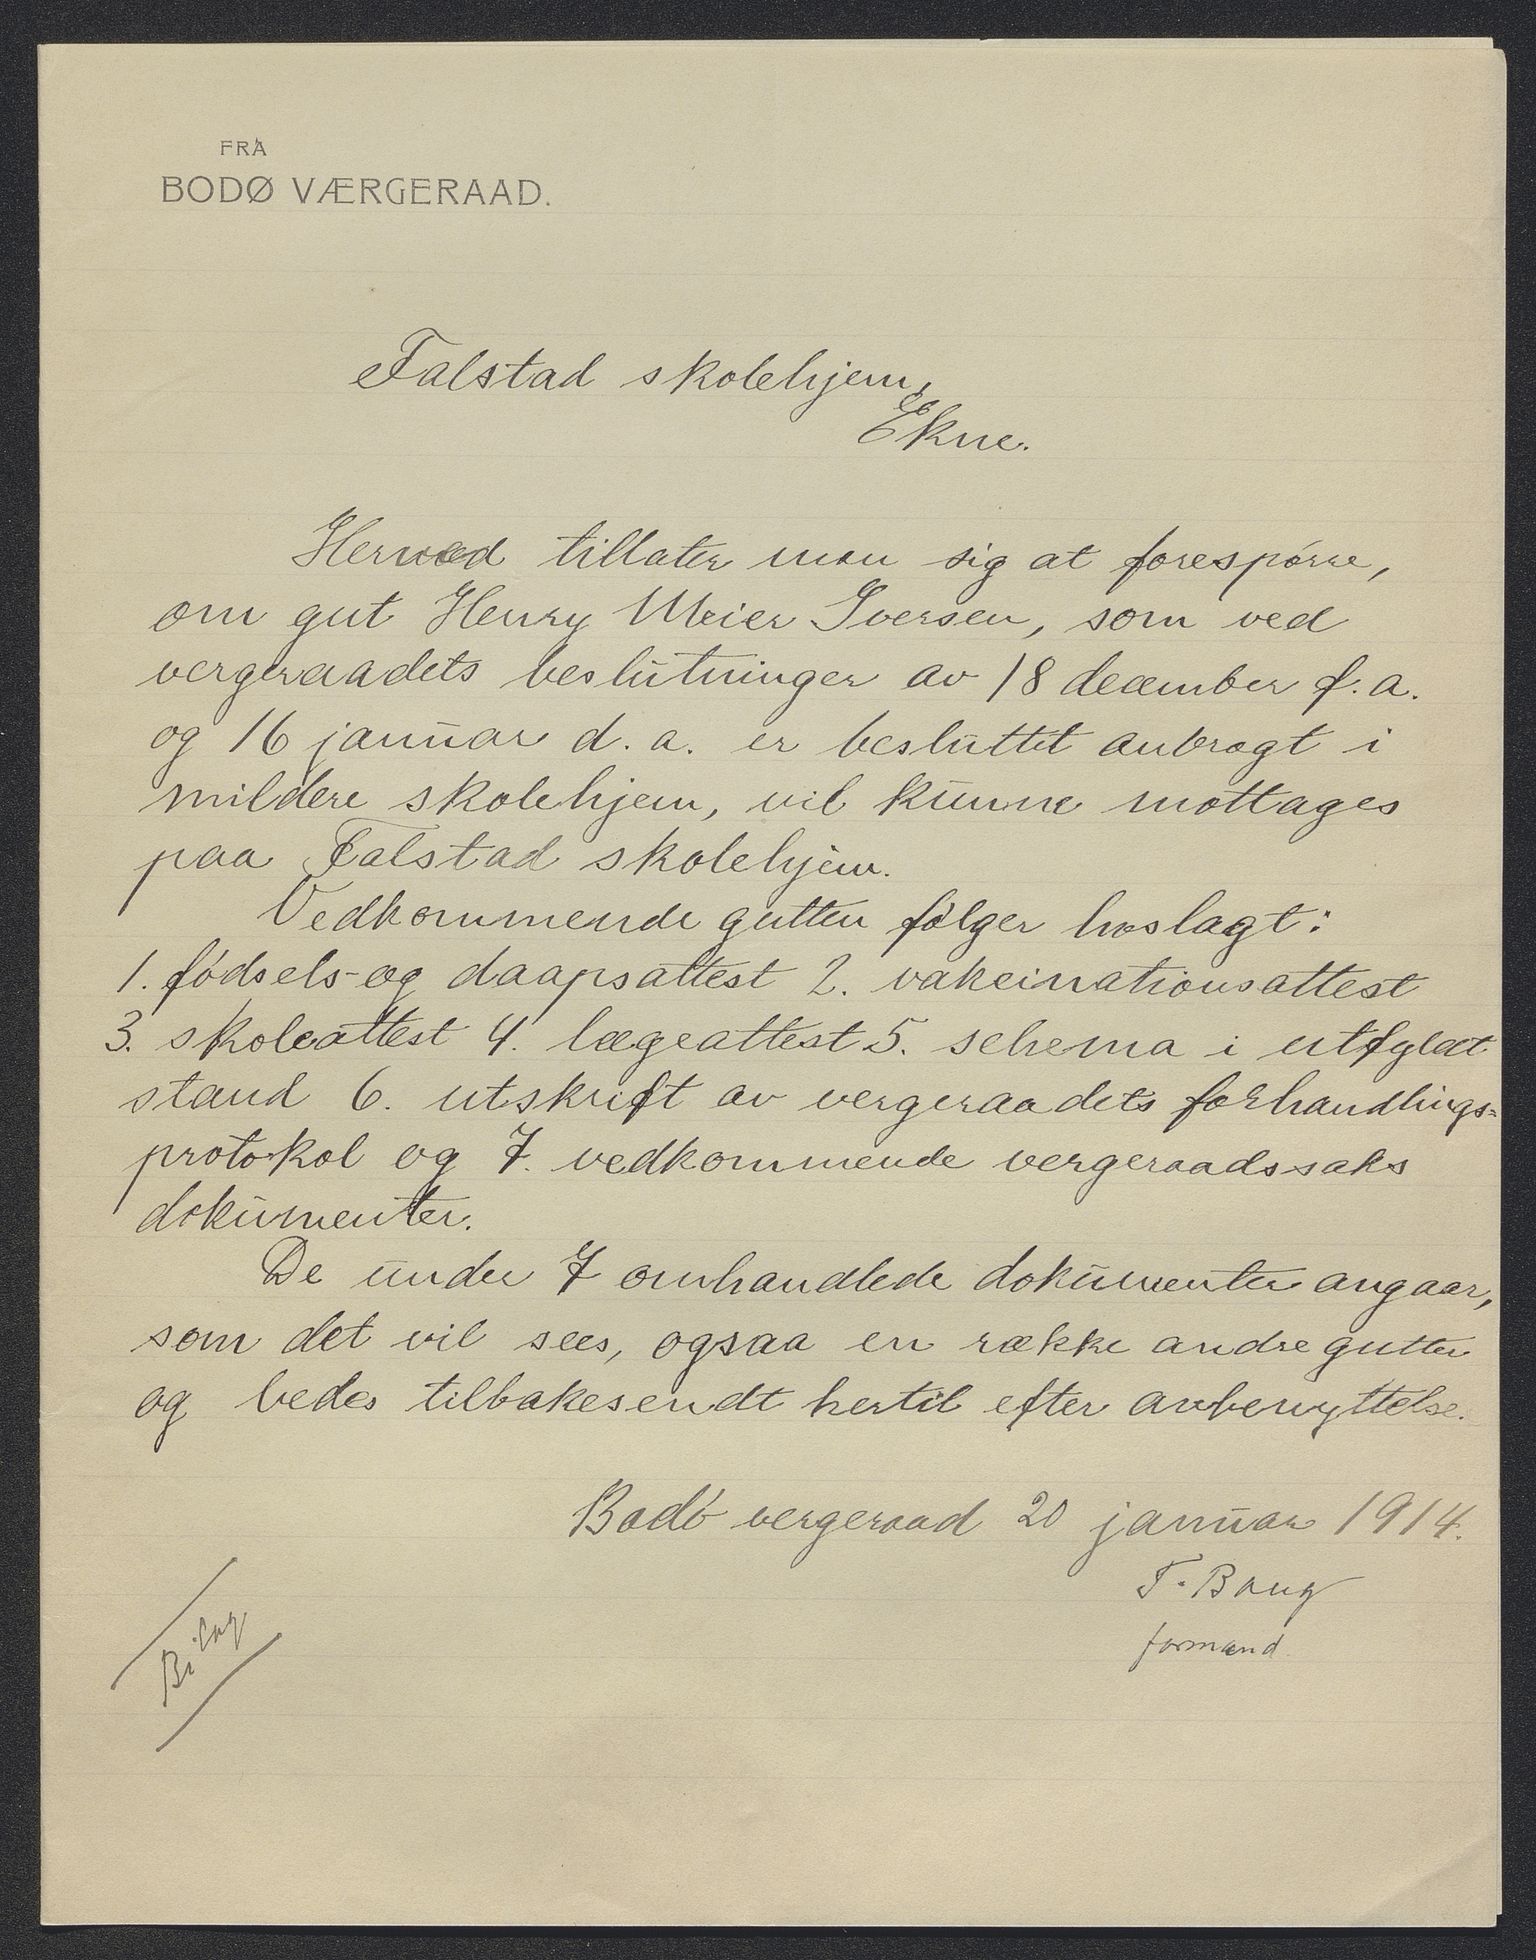 FRA
BODØ VÆRGERAAD.
Falstad skolehjem,
Ekne.
Herved tillater man sig at forespørre,
om gut Henry Meier Iversen, som ved
vergeraadets beslutninger av 18 december f. a.
og 16 januar d. a. er besluttet anbragt i
mildere skolehjem, vil kunne mottages
paa Falstad skolehjem.
Vedkommende gutten følger hoslagt:
1. fødsels- og daapsattest 2. vakcinationsattest
3. skoleattest 4. lægeattest 5. schema i utfyldt
stand 6. utskrift av vergeraadets forhandlings=
protokol og 7. vedkommende vergeraadssaks
dokumenter.
De under 7 omhandlede dokumenter angaar,
som det vil sees, ogsaa en række andre gutter
og bedes tilbakesendt hertil efter avbenyttelse.
Bodø vergeraad 20 januar 1914.
T. Bang
formand
Bilag